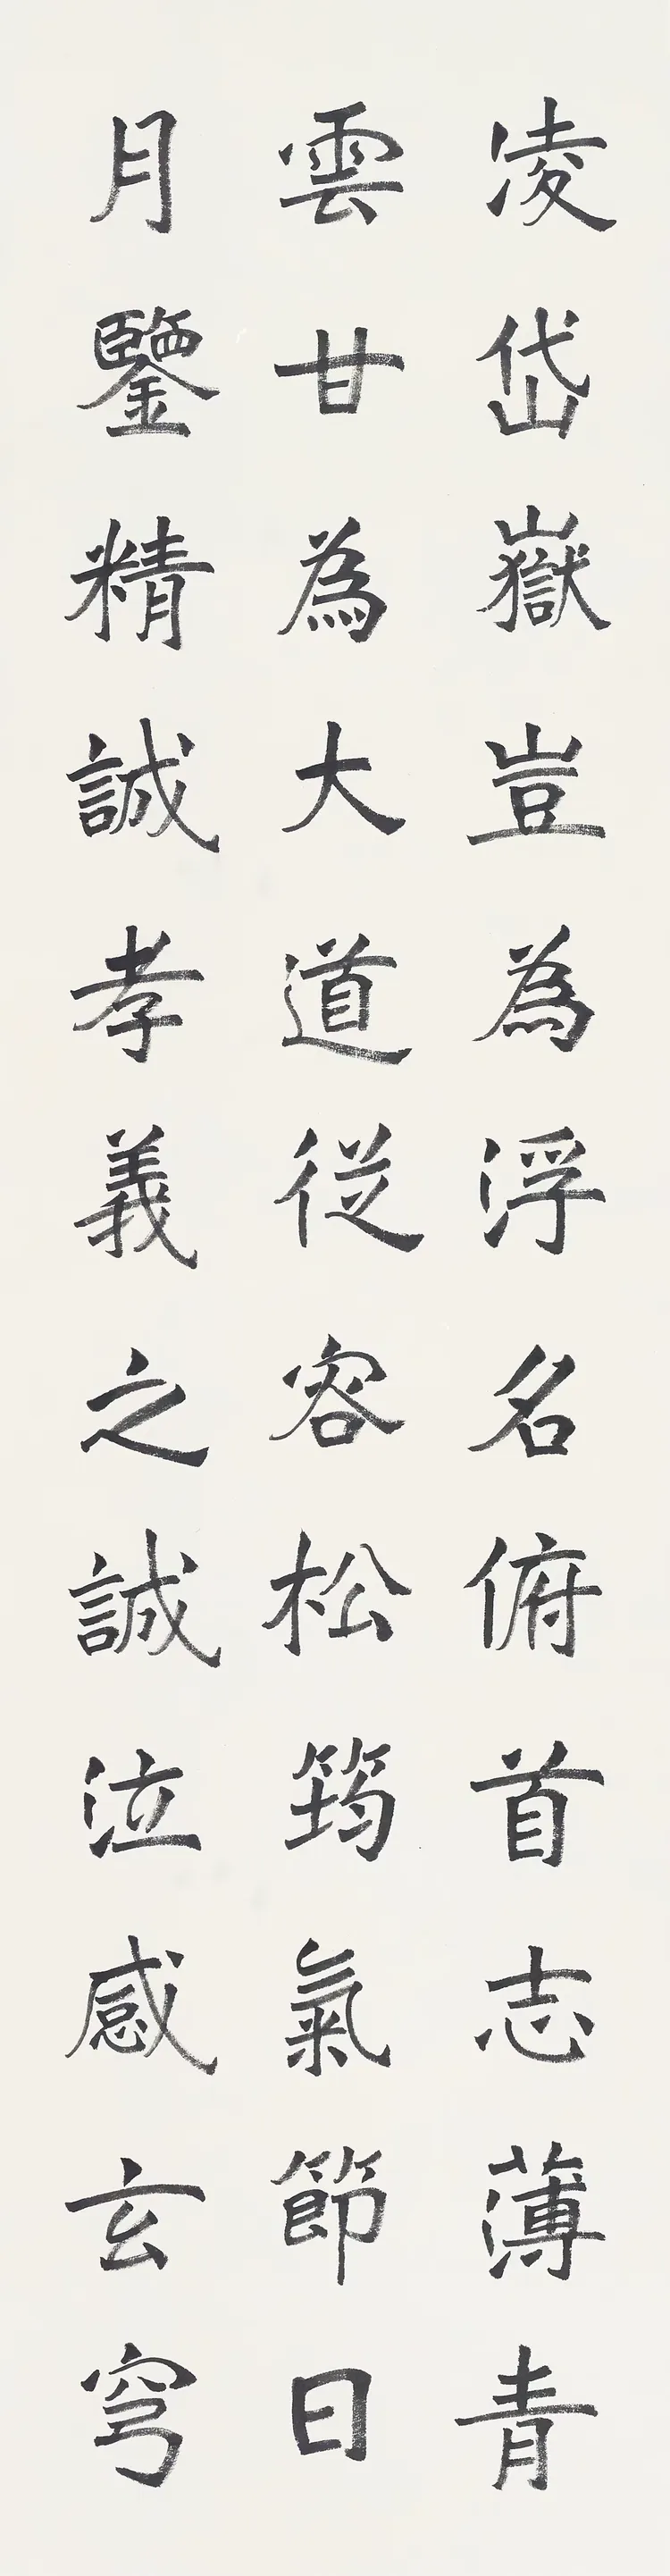 凌岱嶽豈為浮名俯首志薄青
雲廿為大道従容松筠氣節日
月鑒精誠孝義之誠泣感玄穹